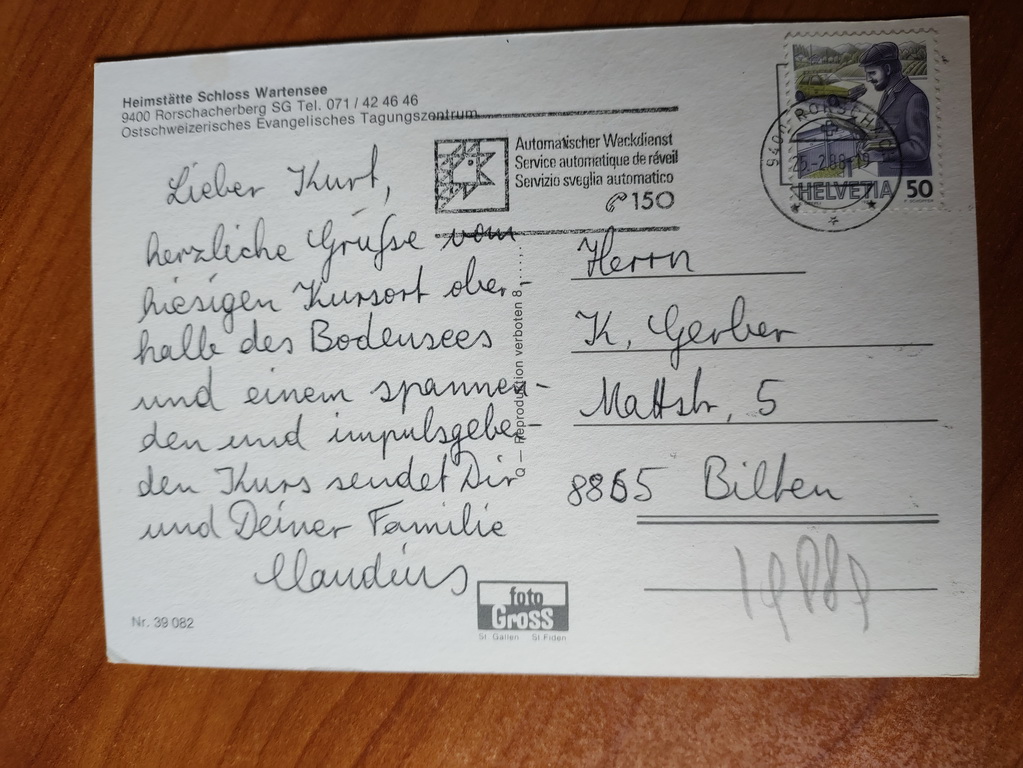 Heimstätte Schloss Wartensee
9400 Rorschacherberg SG Tel. 071 / 42 46 46
Ostschweizerisches Evangelisches Tagungszentrum
Automatischer Weckdienst
Service automatique de réveil
Servizio sveglia automatico
150
HELVETIA 50
Lieber Kurt,
herzliche Grüsse vom
hiesigen Kursort ober-
halb des Bodensees
und einem spannen-
den und impulsgeben-
den Kurs sendet Dir
und Deiner Familie
Claudius
Q — Reproduktion verboten 8......
Herrn
K. Gerber
Mattstr. 5
8865 Bilten
foto
Gross
St. Gallen St. Fiden
Nr. 39 082